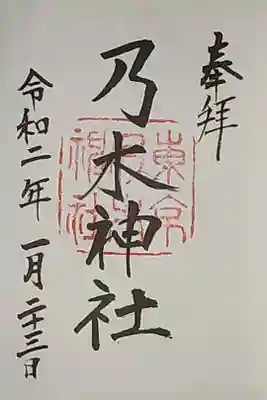 奉拝
乃木神社
東京乃木神社
令和二年 一月 二十三日